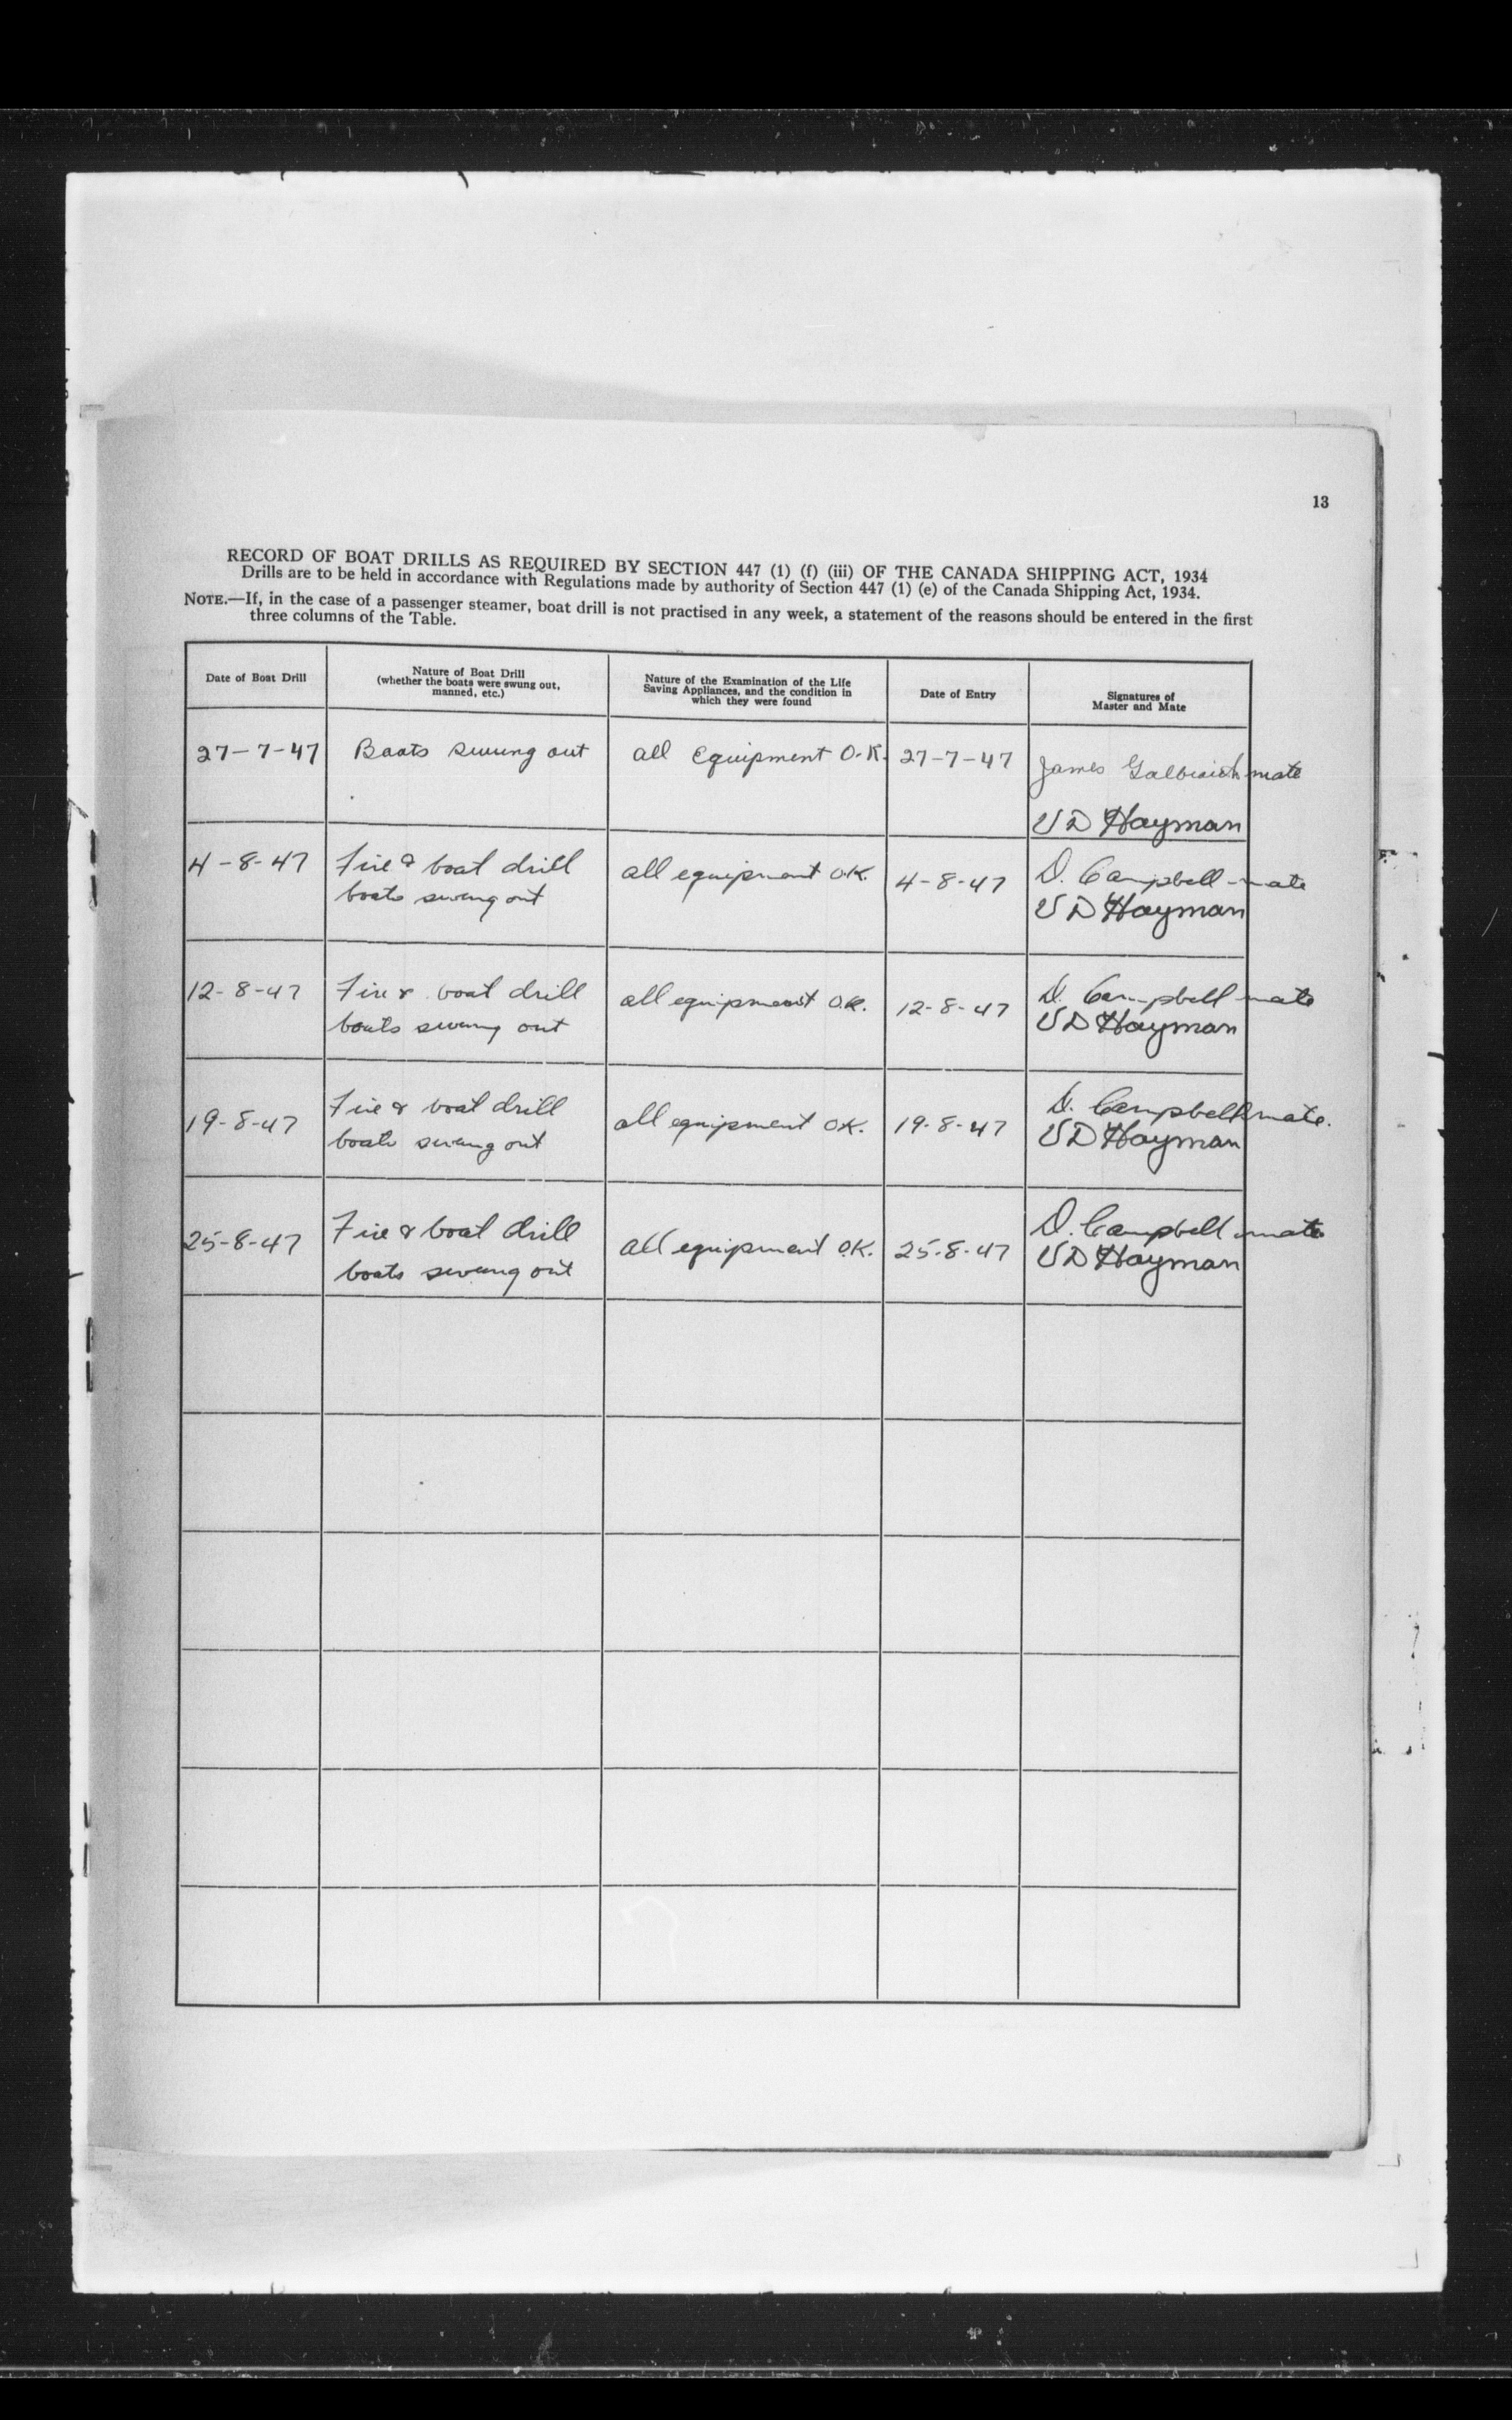 13
RECORD OF BOAT DRILLS AS REQUIRED BY SECTION 447 (1) (f) (iii) OF THE CANADA SHIPPING ACT, 1934
Drills are to be held in accordance with Regulations made by authority of Section 447 (1) (e) of the Canada Shipping Act, 1934.
NOTE.—If, in the case of a passenger steamer, boat drill is not practised in any week, a statement of the reasons should be entered in the first
three columns of the Table.
Date of Boat Drill
Nature of Boat Drill
(whether the boats were swung out,
manned, etc.)
Nature of the Examination of the Life
Saving Appliances, and the condition in
which they were found
Date of Entry
Signatures of
Master and Mate
27-7-47
Boats swung out
all Equipment O.K.
27-7-47
James Galbraith mate
V D Hayman
4-8-47
Fire & boat drill
boats swung out
all equipment O.K.
4-8-47
D. Campbell - mate
V D Hayman
12-8-47
Fire & boat drill
boats swung out
all equipment O.K.
12-8-47
D. Campbell mate
V D Hayman
19-8-47
Fire & boat drill
boats swung out
all equipment O.K.
19-8-47
D. Campbell mate.
V D Hayman
25-8-47
Fire & boat drill
boats swung out
all equipment O.K.
25-8-47
D. Campbell mate
V D Hayman